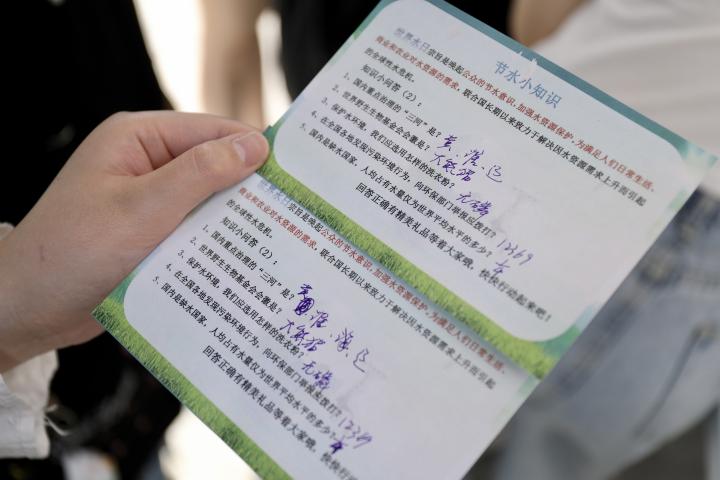 节水小知识
世界水日宗旨是唤起公众的节水意识,加强水资源保护,为满足人们日常生活、
商业和农业对水资源的需求,联合国长期以来致力于解决因水资源需求上升而引起
的全球性水危机。
知识小问答(2):
1、国内重点治理的“三河”是? 黄、淮、辽
2、世界野生生物基金会会徽是? 大熊猫
3、保护水环境,我们应选用怎样的洗衣粉? 无磷
4、在全国各地发现污染环境行为,向环保部门举报应拨打? 12369
5、国内是缺水国家,人均占有水量仅为世界平均水平的多少?
回答正确有精美礼品等着大家哦,快快行动起来吧!
世界水日宗旨是唤起公众的节水意识,加强水资源保护,为满足人们日常生活、
商业和农业对水资源的需求,联合国长期以来致力于解决因水资源需求上升而引起
的全球性水危机。
知识小问答(2):
1、国内重点治理的“三河”是? 淮、辽
2、世界野生生物基金会会徽是? 大熊猫
3、保护水环境,我们应选用怎样的洗衣粉? 无磷
4、在全国各地发现污染环境行为,向环保部门举报应拨打? 12369
5、国内是缺水国家,人均占有水量仅为世界平均水平的多少?
回答正确有精美礼品等着大家哦,快快行